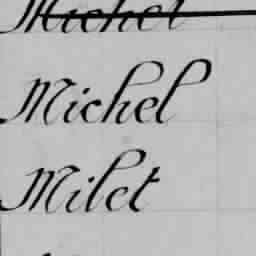 Michel
Michel
Milet